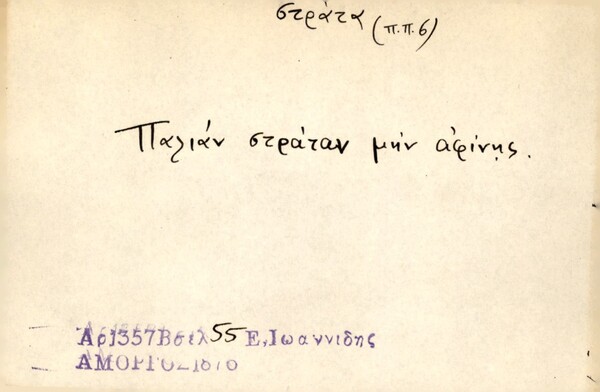 στράτα (π.π. 6)
Παλιάν στράταν μήν ἀφίνῃς.
Αρ1357Βσελ 55 Ε,Ιωαννιδης
ΑΜΟΡΓΟΣ1876